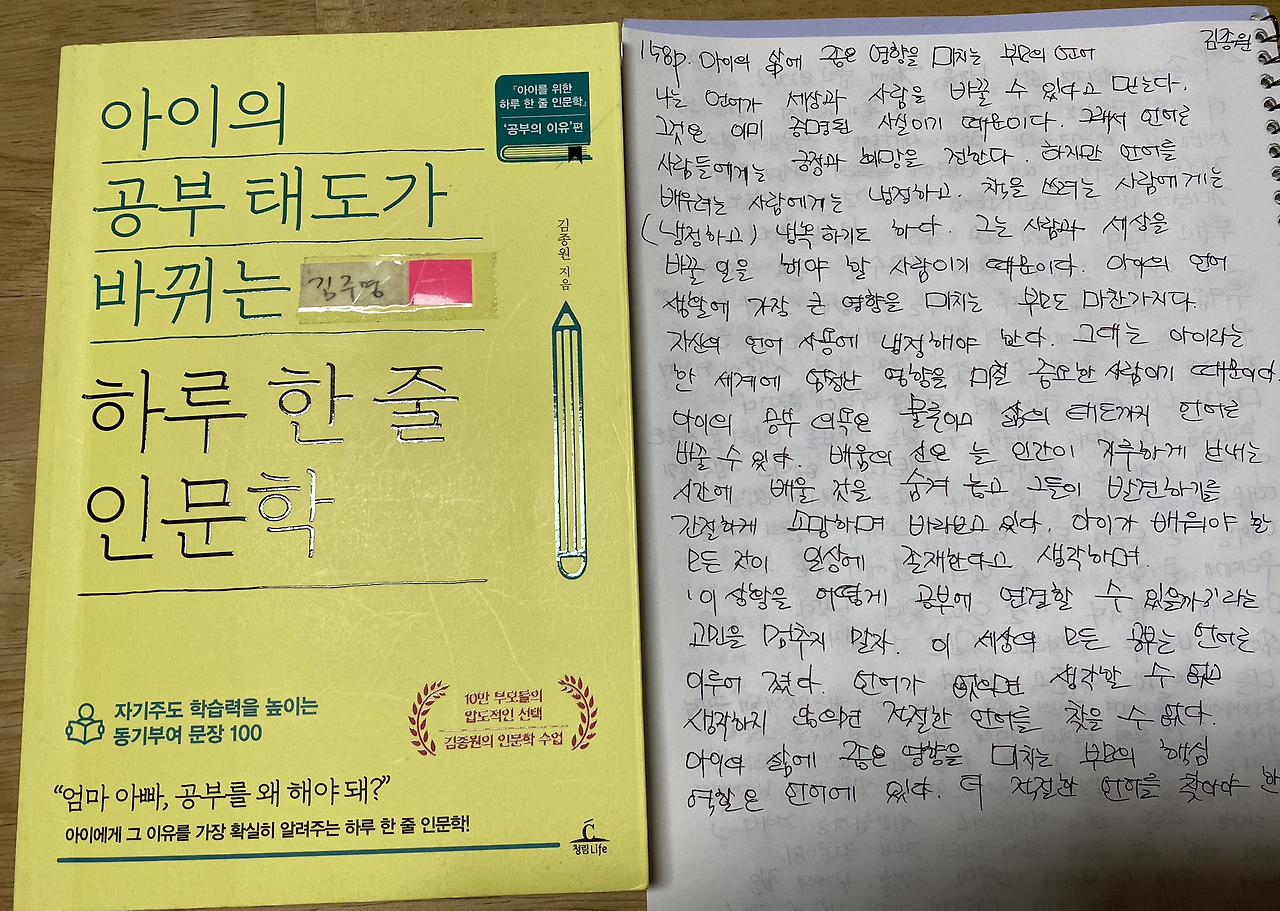 아이의
공부 태도가
바뀌는
김주명
하루 한 줄
인문학
『아이를 위한
하루 한 줄 인문학』
'공부의 이유'편
김종원 지음
자기주도 학습력을 높이는
동기부여 문장 100
10만 부모들의
압도적인 선택
김종원의 인문학 수업
"엄마 아빠, 공부를 왜 해야 돼?"
아이에게 그 이유를 가장 확실히 알려주는 하루 한 줄 인문학!
청림Life
김종원
158p. 아이의 삶에 좋은 영향을 미치는 부모의 언어
나는 언어가 세상과 사람을 바꿀 수 있다고 믿는다.
그것은 이미 증명된 사실이기 때문이다. 그래서 언어로
사람들에게는 긍정과 희망을 전한다. 하지만 언어를
배우려는 사람에게는 냉정하고, 책을 쓰려는 사람에게는
(냉정하고) 냉혹하기도 하다. 그는 사람과 세상을
바꿀 일을 해야 할 사람이기 때문이다. 아이의 언어
생활에 가장 큰 영향을 미치는 부모도 마찬가지다.
자신의 언어 사용에 냉정해야 한다. 그대는 아이라는
한 세계에 엄청난 영향을 미칠 중요한 사람이기 때문이다.
아이의 공부 의욕은 물론이고 삶의 태도까지 언어로
바꿀 수 있다. 배움의 신은 늘 인간이 지루하게 보내는
시간에 배울 것을 숨겨 놓고 그들이 발견하기를
간절하게 소망하며 바라보고 있다. 아이가 배워야 할
모든 것이 일상에 존재한다고 생각하며.
'이 상황을 어떻게 공부에 연결할 수 있을까?'라는
고민을 멈추지 말자. 이 세상의 모든 공부는 언어로
이루어 졌다. 언어가 없으면 생각할 수 없고
생각하지 않으면 적절한 언어를 찾을 수 없다.
아이의 삶에 좋은 영향을 미치는 부모의 핵심
역할은 언어에 있다. 더 적절한 언어를 찾아야 한